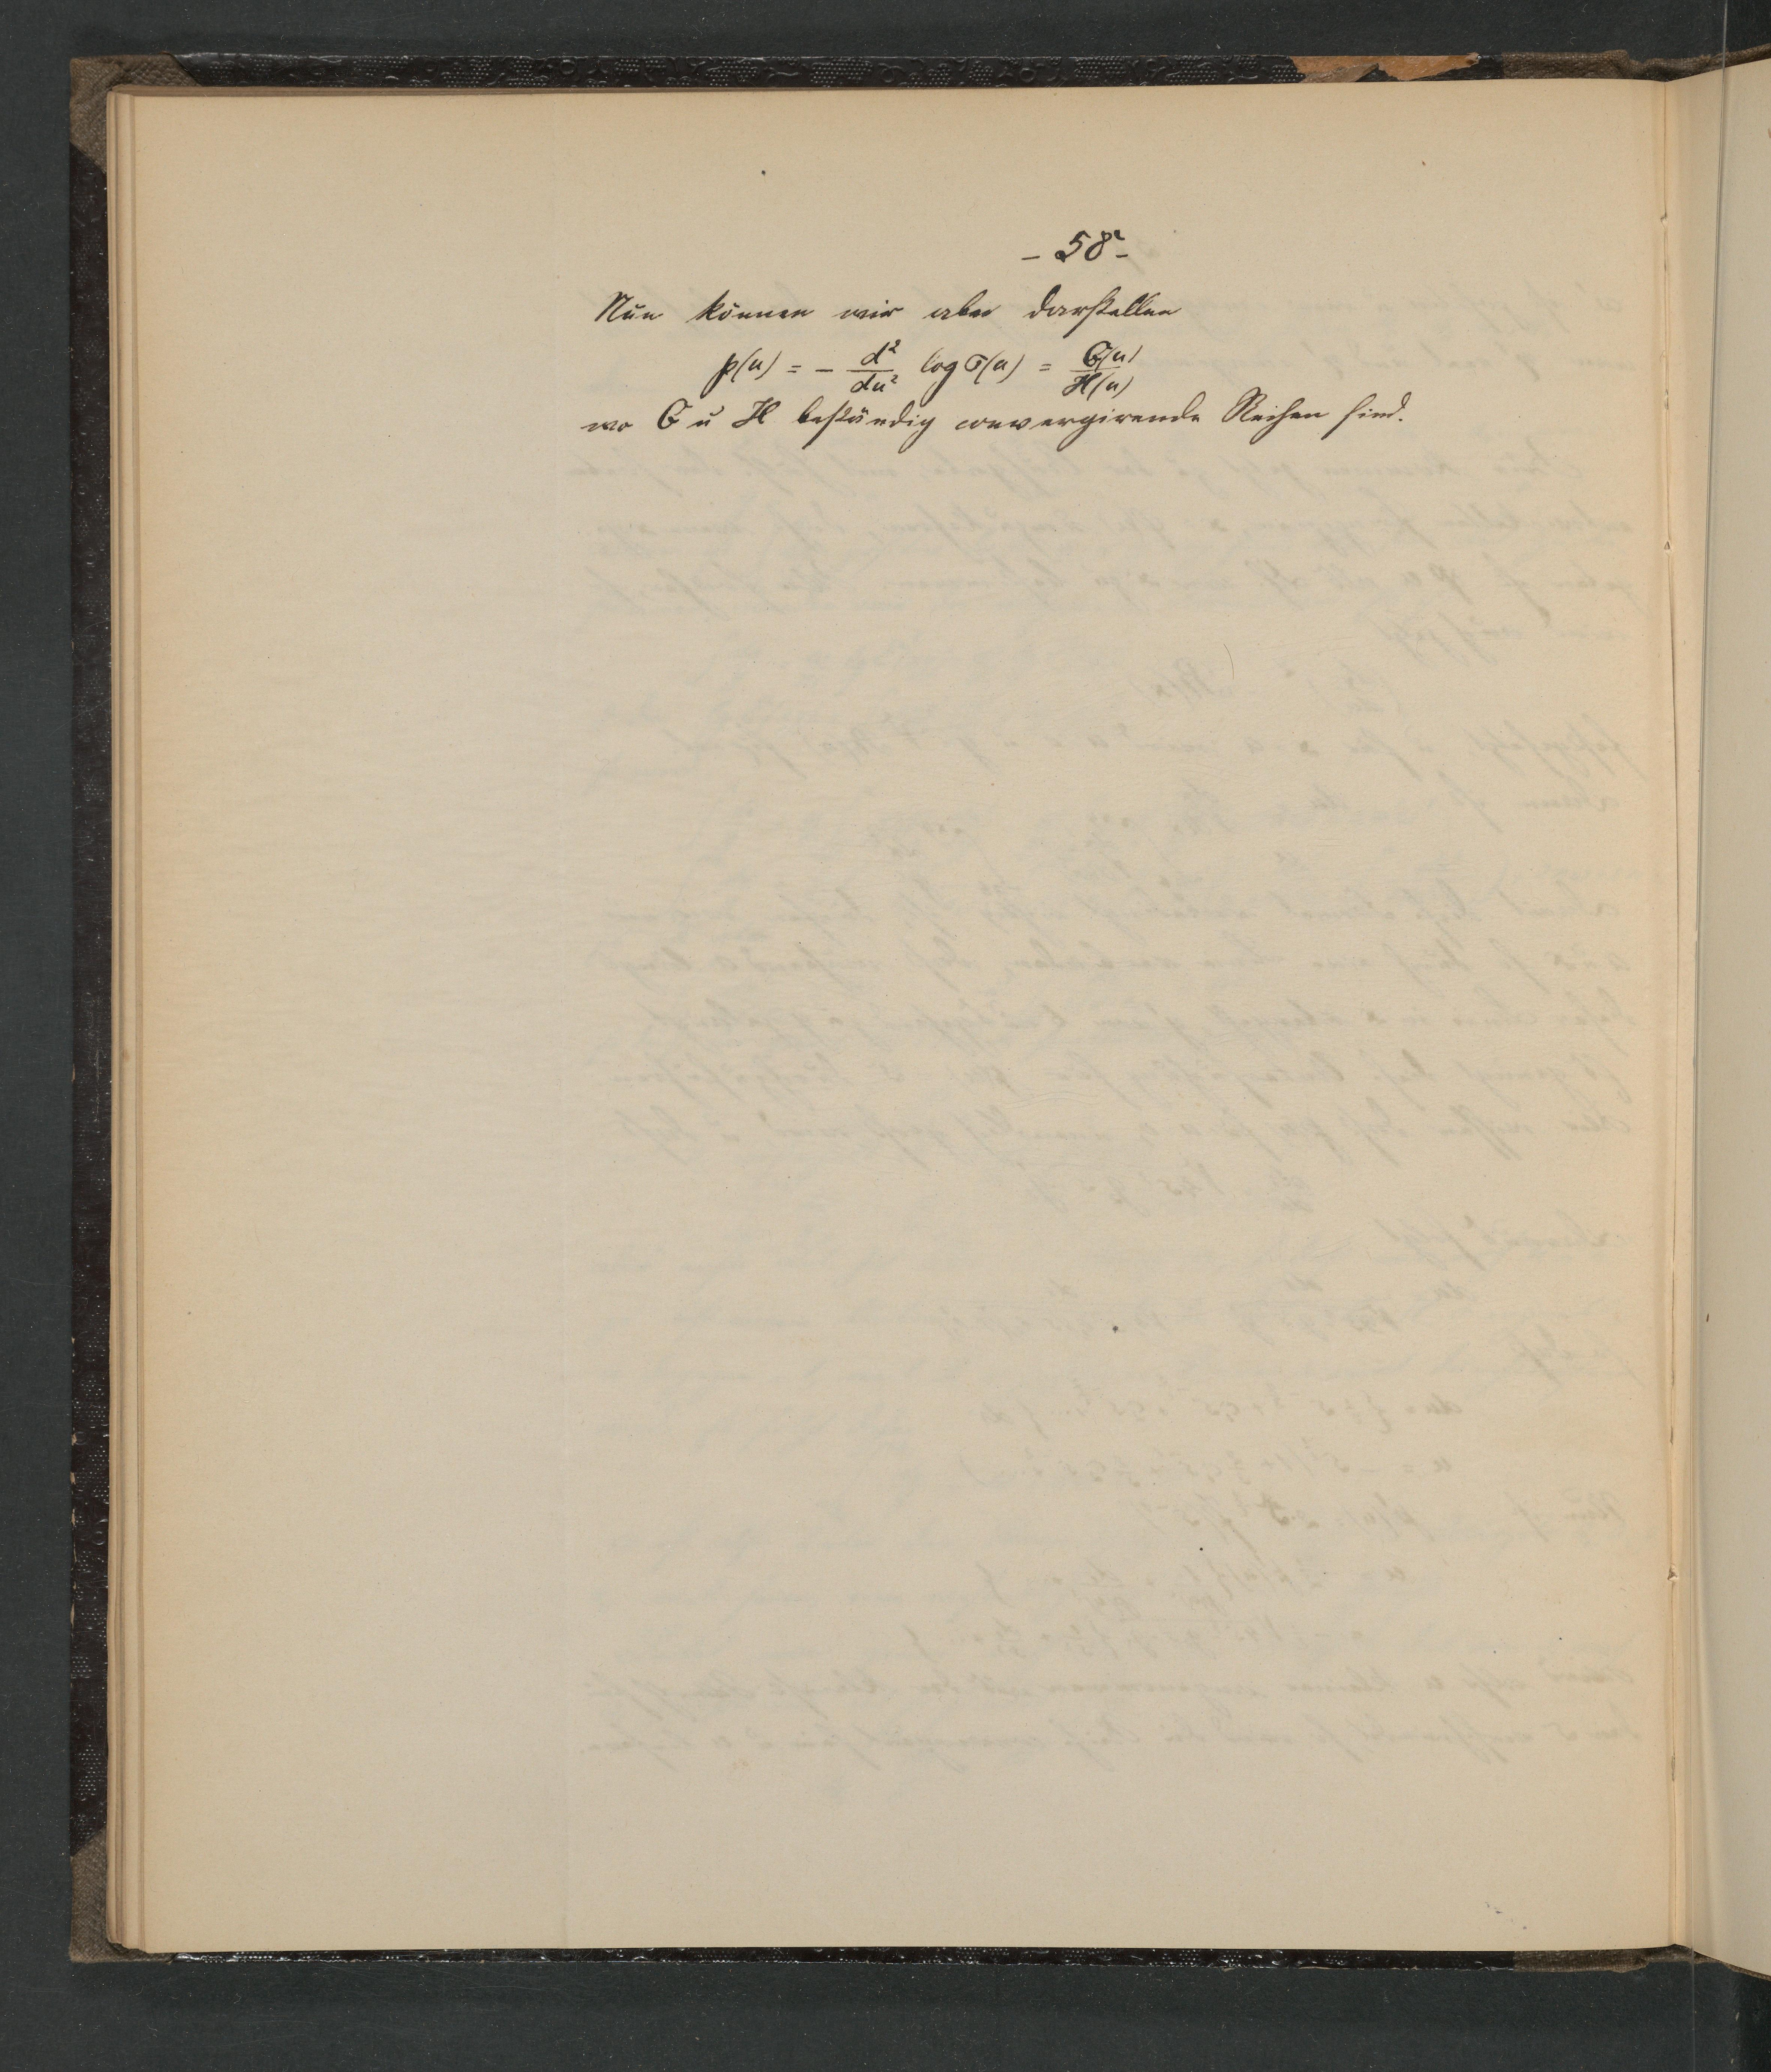 - 58 -
Nun können wir aber darstellen
℘(u) = - d²/du² log σ(u) = G(u)/H(u)
wo G u H beständig convergirende Reihen sind.